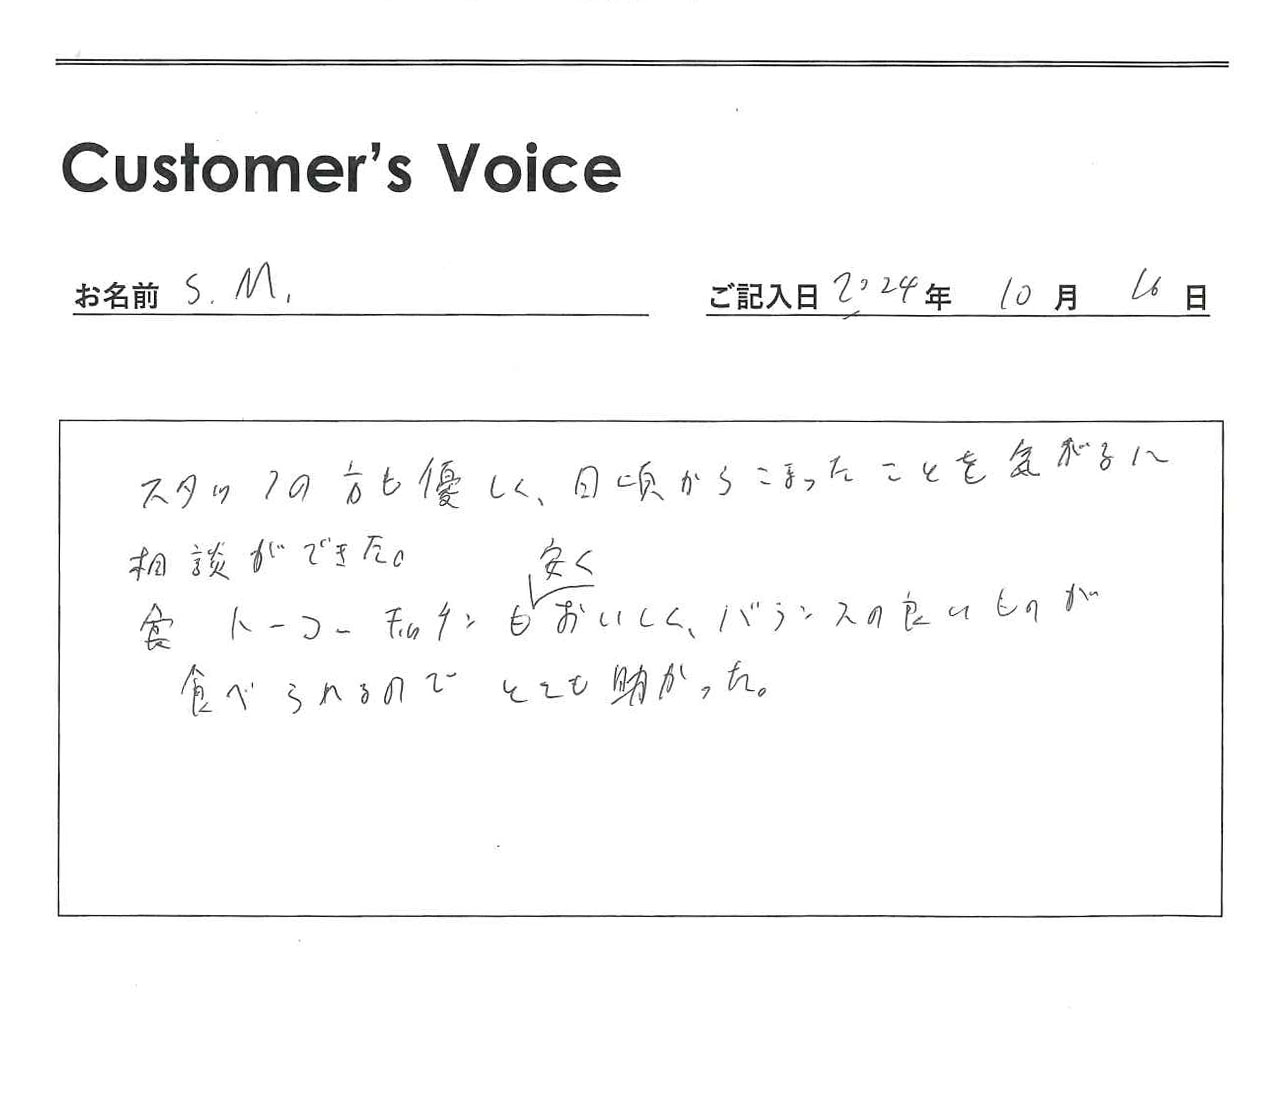 Customer's Voice
お名前 S. M.
ご記入日 2024年 10月 16日
スタッフの方も優しく、日頃からこまったことを気がるに
相談ができた。
食 トーコーキッチンも安くおいしく、バランスの良いものが
食べられるのでとても助かった。